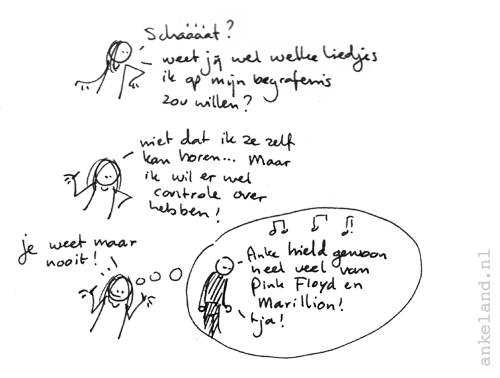 Schäääät?
weet jij wel welke liedjes
ik op mijn begrafenis
zou willen?
niet dat ik ze zelf
kan horen... Maar
ik wil er wel
controle over
hebben!
je weet maar
nooit!
Anke hield gewoon
heel veel van
Pink Floyd en
Marillion!
tja!
ankeland.nl